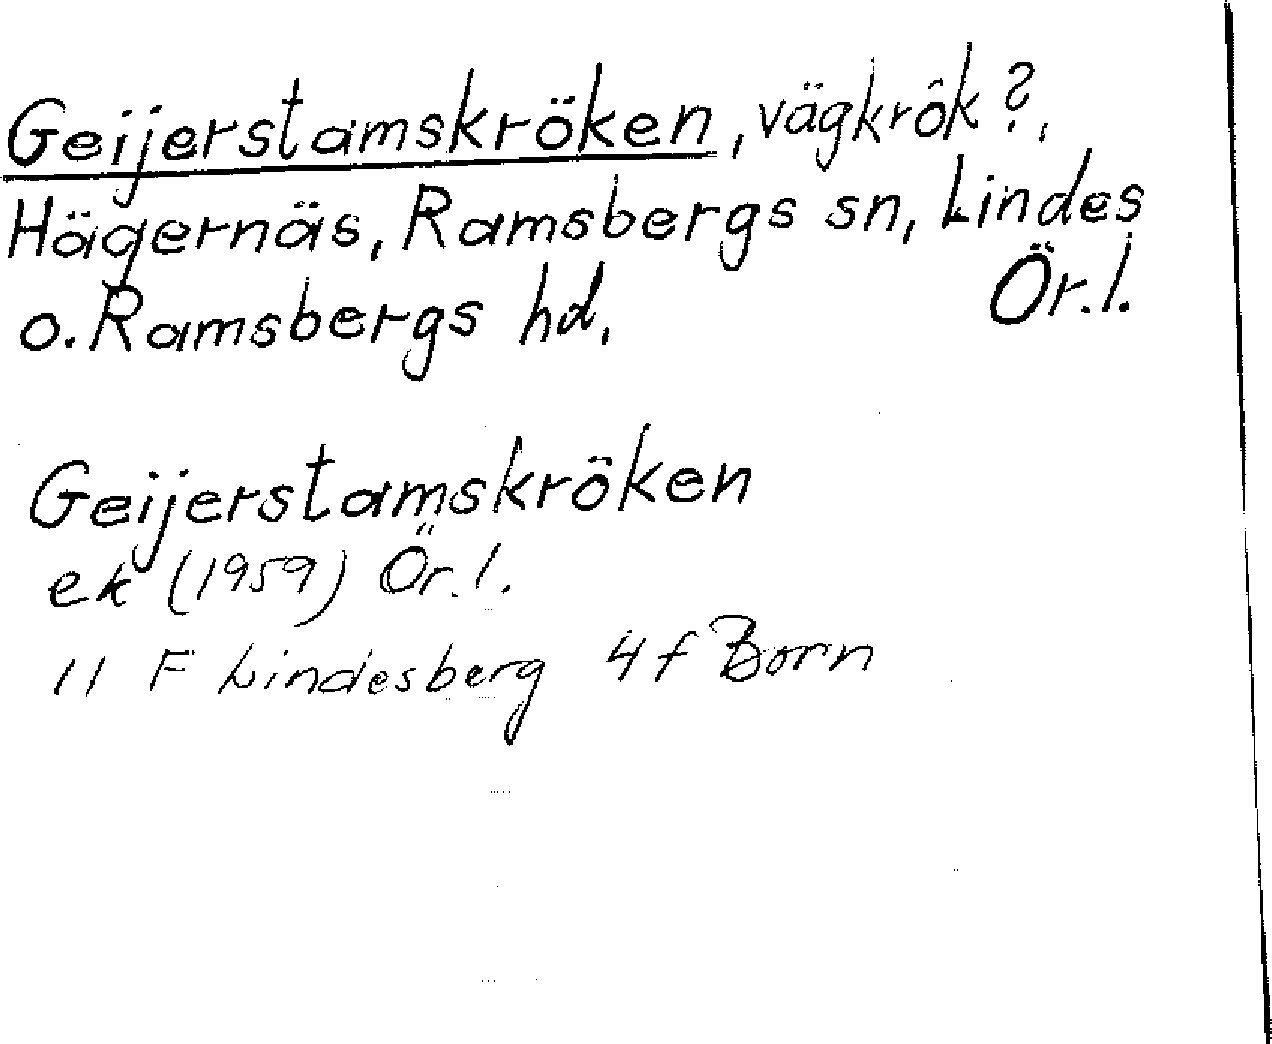 Geijerstamskröken, vägkrök?,
Hägernäs, Ramsbergs sn, Lindes
o. Ramsbergs hd. Ör. l.
Geijerstamskröken
ek (1959) Ör. l.
11 F Lindesberg 4 f Born